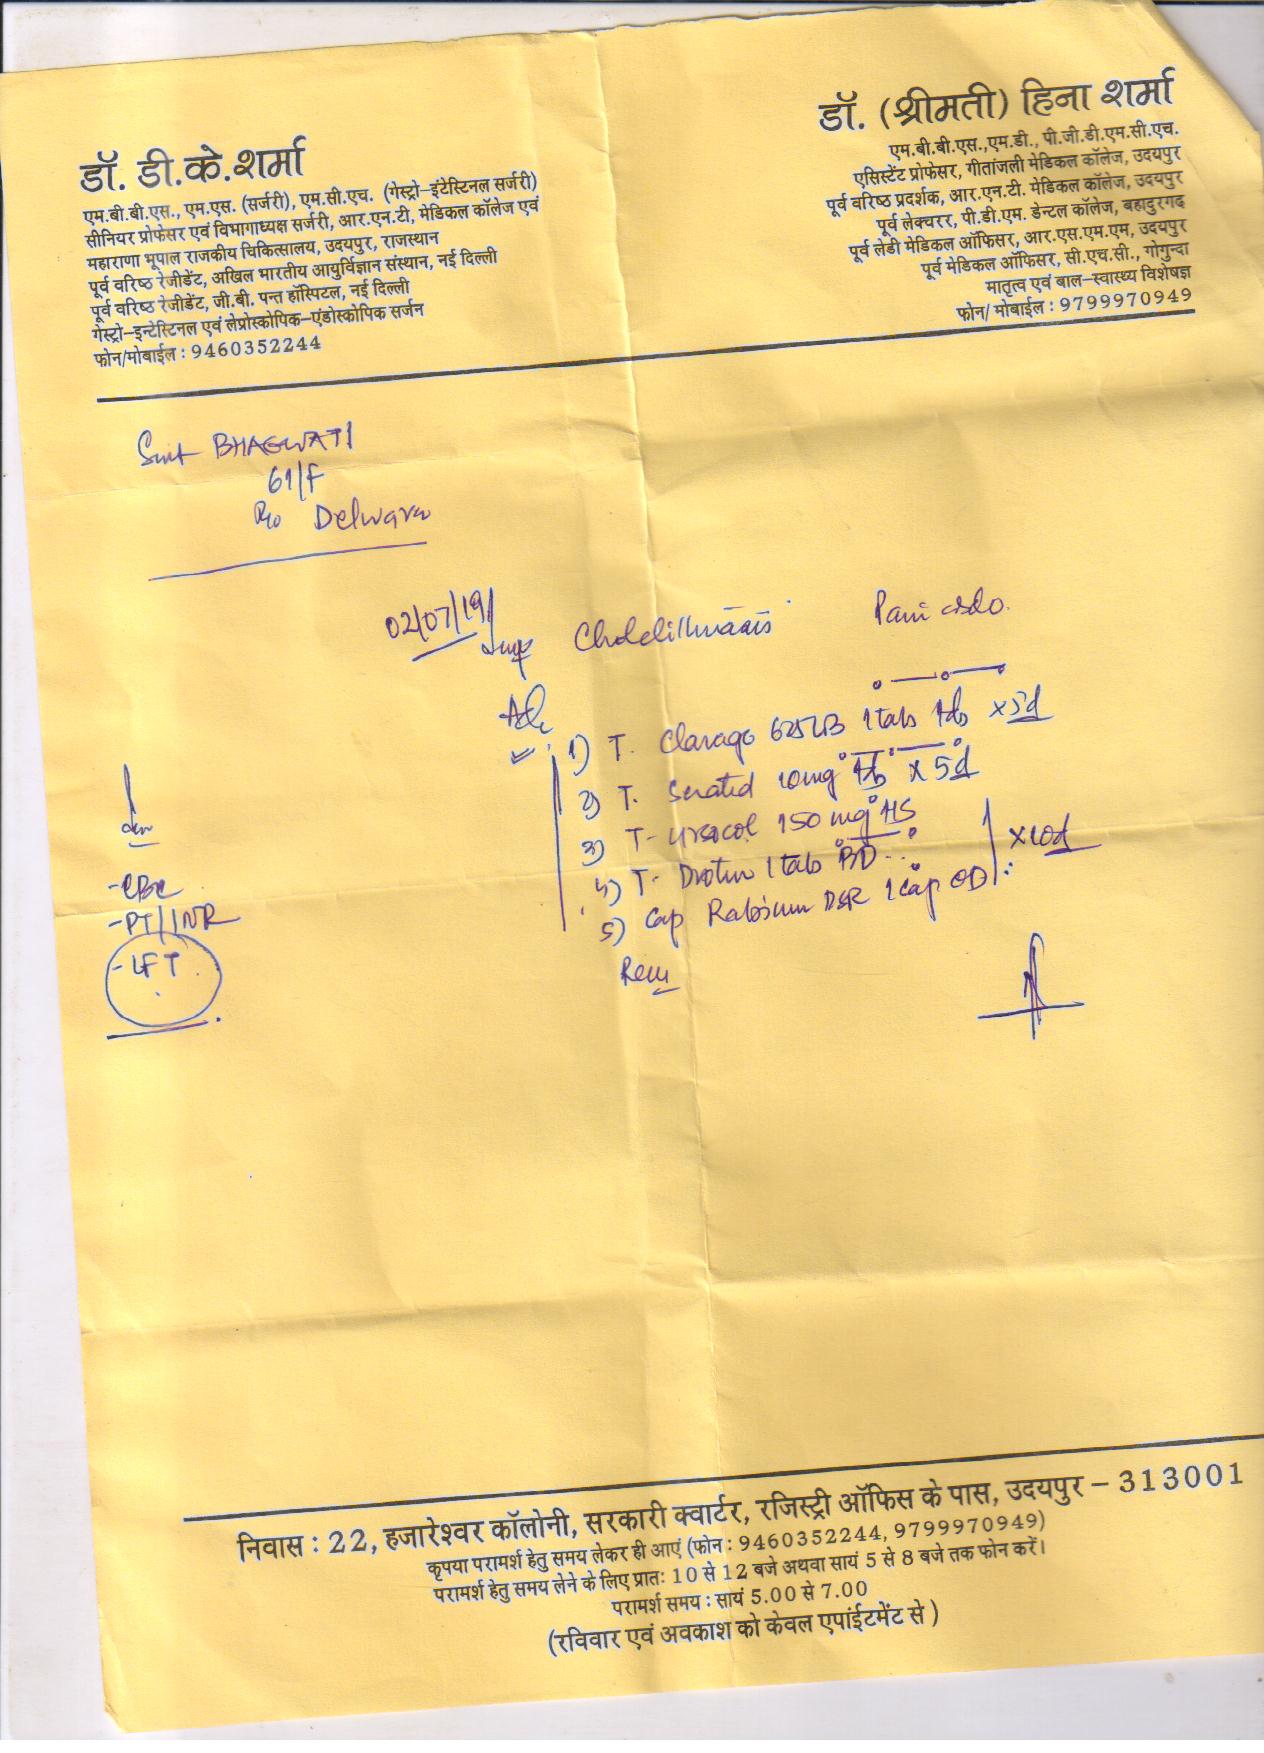 डॉ. डी.के.शर्मा
एम.बी.बी.एस., एम.एस. (सर्जरी), एम.सी.एच. (गेस्ट्रो-इंटेस्टिनल सर्जरी)
सीनियर प्रोफेसर एवं विभागाध्यक्ष सर्जरी, आर.एन.टी. मेडिकल कॉलेज एवं
महाराणा भूपाल राजकीय चिकित्सालय, उदयपुर, राजस्थान
पूर्व वरिष्ठ रेजीडेंट, अखिल भारतीय आयुर्विज्ञान संस्थान, नई दिल्ली
पूर्व वरिष्ठ रेजीडेंट, जी.बी. पन्त हॉस्पिटल, नई दिल्ली
गेस्ट्रो-इन्टेस्टिनल एवं लेप्रोस्कोपिक-एंडोस्कोपिक सर्जन
फोन/मोबाईल : 9460352244
डॉ. (श्रीमती) हिना शर्मा
एम.बी.बी.एस.,एम.डी., पी.जी.डी.एम.सी.एच.
एसिस्टेंट प्रोफेसर, गीतांजली मेडिकल कॉलेज, उदयपुर
पूर्व वरिष्ठ प्रदर्शक, आर.एन.टी. मेडिकल कॉलेज, उदयपुर
पूर्व लेक्चरर, पी.डी.एम. डेन्टल कॉलेज, बहादुरगढ़
पूर्व लेडी मेडिकल ऑफिसर, आर.एस.एम.एम, उदयपुर
पूर्व मेडिकल ऑफिसर, सी.एच.सी., गोगुन्दा
मातृत्व एवं बाल-स्वास्थ्य विशेषज्ञ
फोन/ मोबाईल : 9799970949
Smt BHAGWATI
61/F
R/o Delwara
02/07/19
Cholelithiasis Pain abdo.
Adv
1) T. 625 1 tab tds x 5d
2) T. 10mg x 5d
3) T. Ursocol 150 mg HS
4) T. Drotin 1 tab BD
5) Cap DSR 1 cap OD
x 10d
- CBC
- PT/INR
- LFT
निवास : 22, हजारेश्वर कॉलोनी, सरकारी क्वार्टर, रजिस्ट्री ऑफिस के पास, उदयपुर - 313001
कृपया परामर्श हेतु समय लेकर ही आएं (फोन : 9460352244, 9799970949)
परामर्श हेतु समय लेने के लिए प्रातः 10 से 12 बजे अथवा सायं 5 से 8 बजे तक फोन करें।
परामर्श समय : सायं 5.00 से 7.00
(रविवार एवं अवकाश को केवल एपांईटमेंट से )